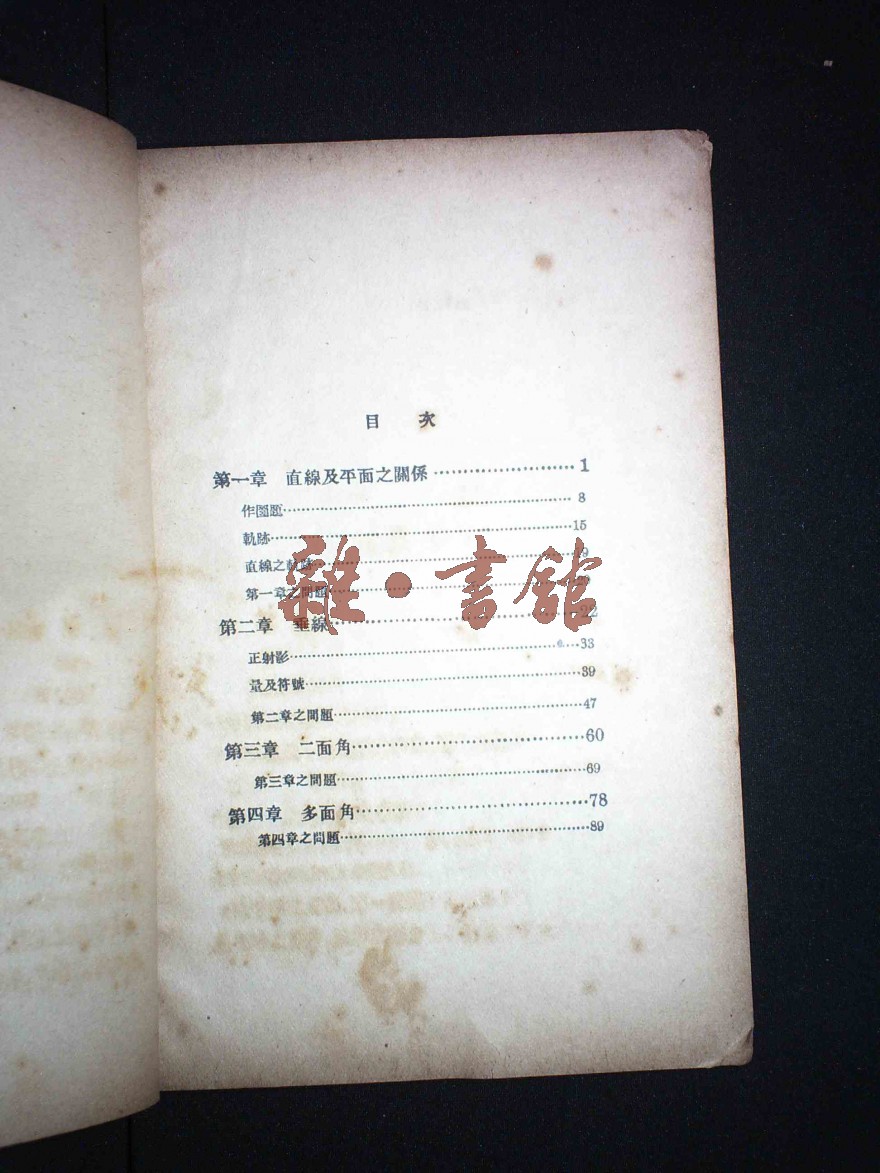 目 次
第一章 直線及平面之關係························1
作圖題················································8
軌跡··················································15
直線之軌跡
第一章之問題
第二章 垂線··································22
正射影················································33
量及符號··············································39
第二章之問題··········································47
第三章 二面角································60
第三章之問題··········································69
第四章 多面角································78
第四章之問題··········································89
雜·書館